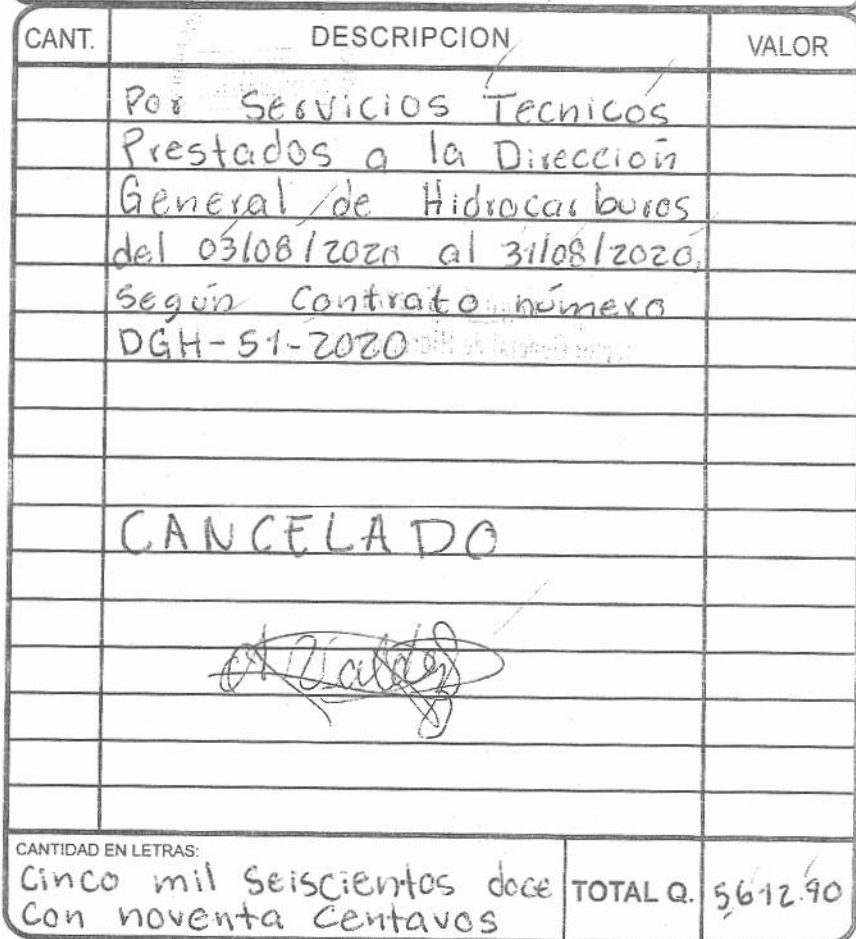 CANT. DESCRIPCION VALOR
Por Servicios Tecnicos
Prestados a la Dirección
General de Hidrocarburos
del 03/08/2020 al 31/08/2020,
Según Contrato número
DGH-51-2020
CANCELADO
CANTIDAD EN LETRAS:
Cinco mil Seiscientos doce
Con noventa Centavos
TOTAL Q. 5,612.90